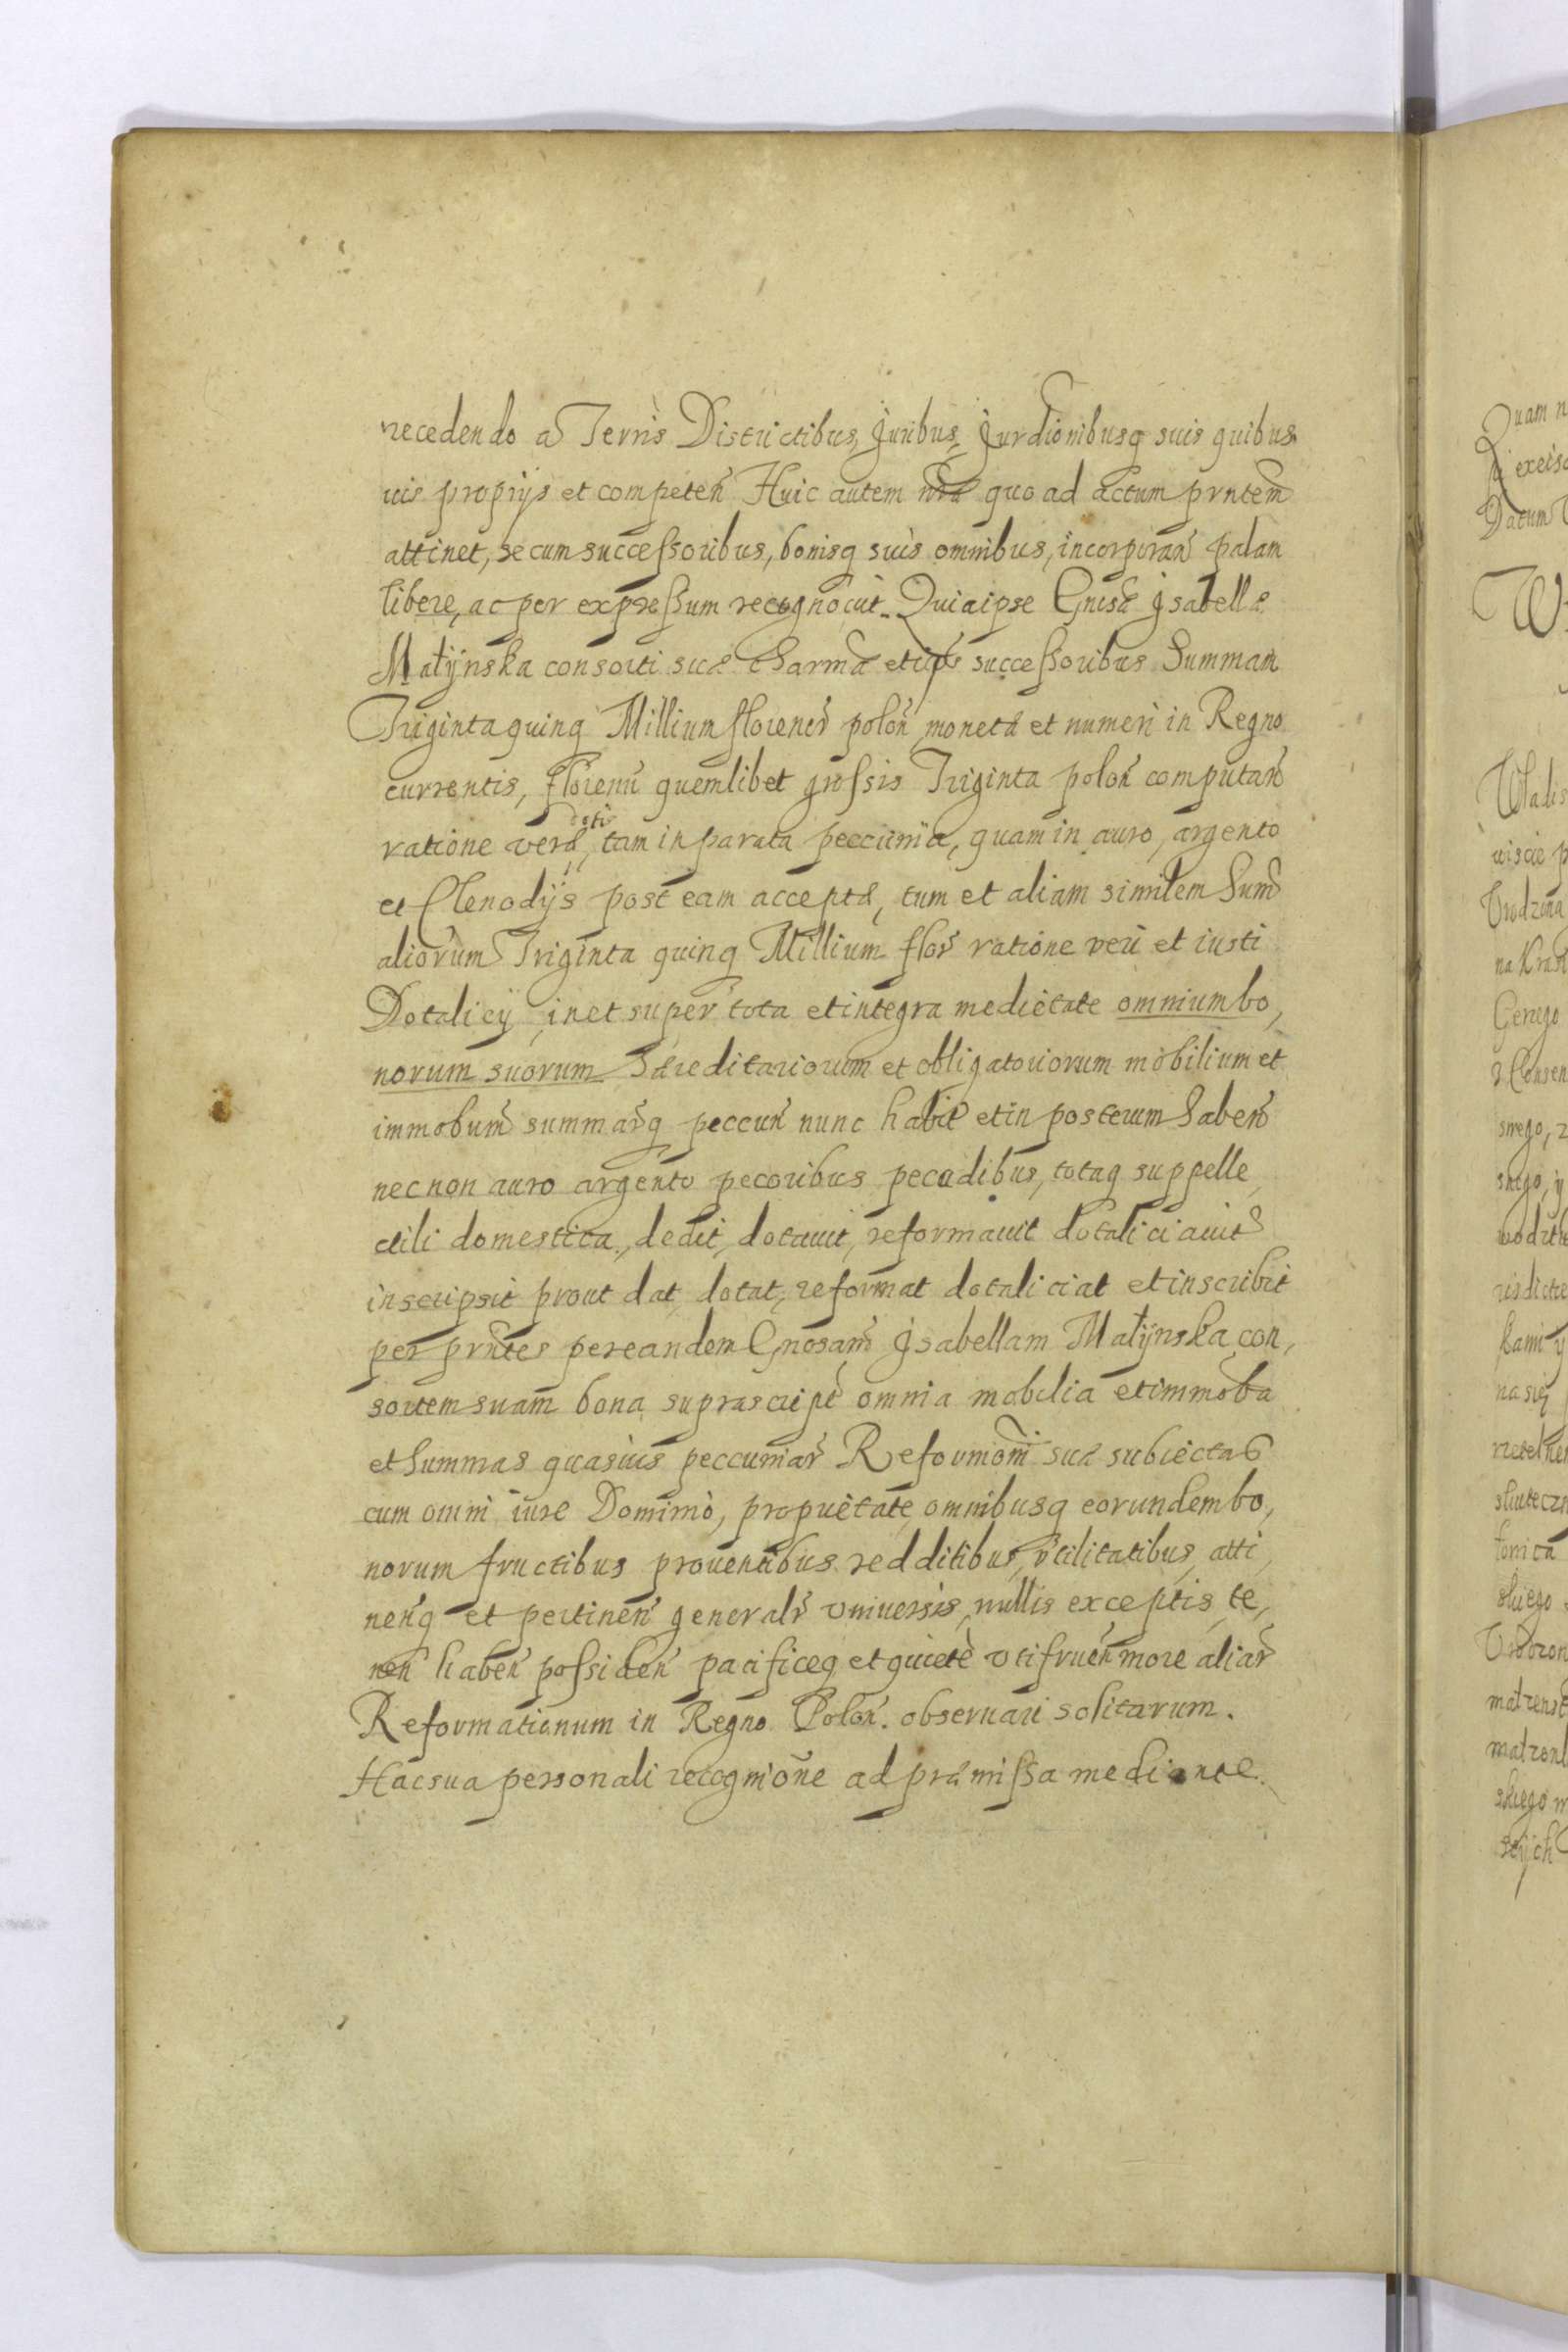 recedendo a Terris Districtibus, Juribus, Jurdionibusq suis quibus
uis proprijs et competen Huic autem nra quo ad actum prntem
attinet, se cum successoribus, bonisq suis omnibus, incorporan palam
libere, ac per expressum recognouit. Quia ipse Gnisæ Jsabellæ
Małÿnska consorti suæ charmæ et ips successoribus Summam
Triginta quinq Millium florenor polon monetæ et numeri in Regno
currentis, florenu quemlibet grossis Triginta polon computan
ratione veræ dotis, tam in parata peccunia, quam in auro, argento
et Clenodijs post eam acceptæ, tum et aliam similem Sum
aliorum Triginta quinq Millium flor ratione veri et iusti
Dotalicij in et super tota et integra medietate omnium bo,
norum suorum Hæreditariorum et obligatoriorum mobilium et
immobum summarq peccun nunc habit et in posterum haben
nec non auro argento pecoribus pecudibus, totaq suppelle,
ctili domestica, dedit, dotauit, reformauit dotaliciauit
inscripsit prout dat, dotat, reformat dotaliciat et inscribit
per prntes per eandem Gnosam Jsabellam Małÿnska con,
sortem suam bona suprascript omnia mobilia et immoba
et Summas quasuis peccuniar Reformoni suæ subiectas
cum omni iure Dominio, proprietate omnibusq eorundem bo,
norum fructibus prouentibus redditibus, vtilitatibus, atti,
nenq et pertinen generalr vniuersis, nullis exceptis, te,
nen haben possiden pacificeq et quietè vtifruen more aliar
Reformationum in Regno Polon. obseruari solitarum.
Hac sua personali recognione ad præmissa mediante.
Quam n
Datum
na Kras
smego, z
kami y
na się
skiego m